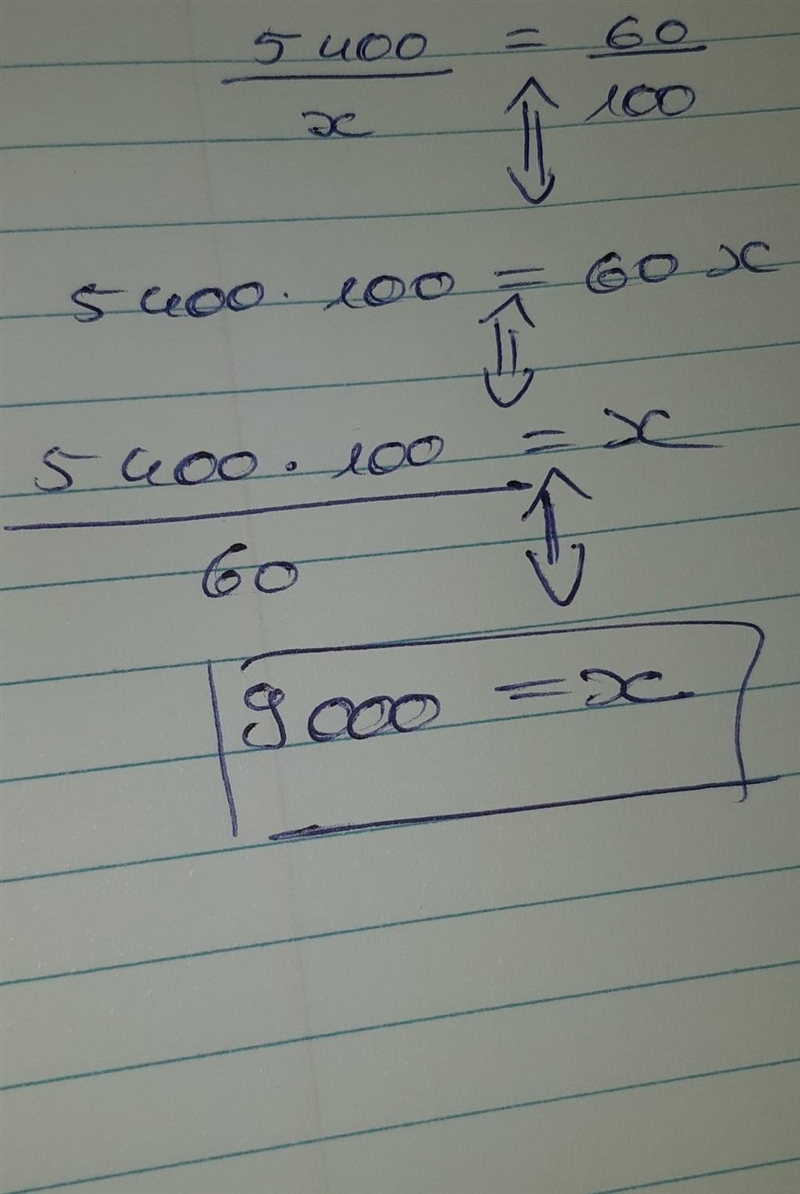 5400/x = 60/100
⇕
5400 · 100 = 60x
⇕
5400 · 100/60 = x
⇕
9000 = x